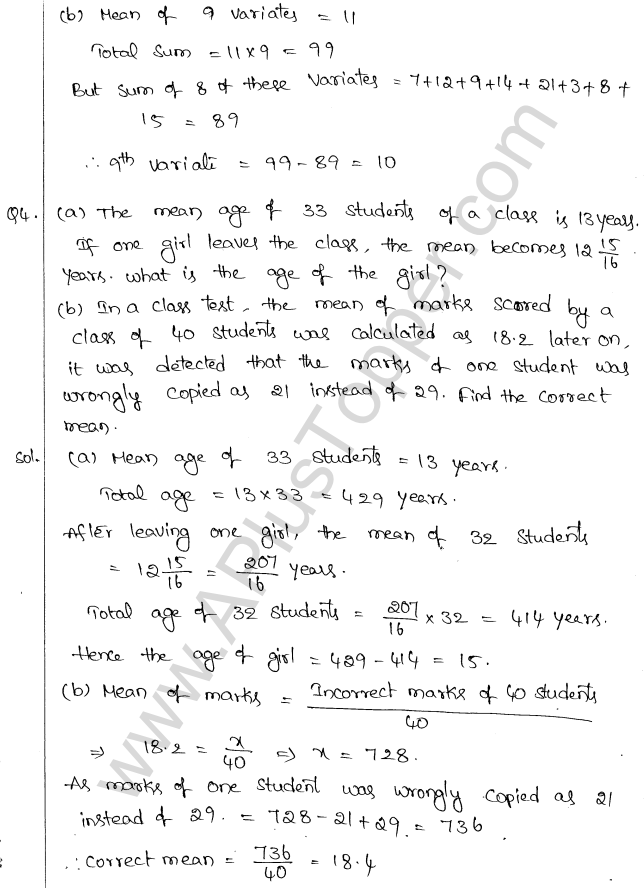 (b) Mean of 9 variates = 11
Total Sum = 11 × 9 = 99
But Sum of 8 of these Variates = 7+12+9+14+21+3+8+
15 = 89
∴ 9th variate = 99 - 89 = 10
Q4. (a) The mean age of 33 students of a class is 13 years.
If one girl leaves the class, the mean becomes 12 15/16
years. what is the age of the girl?
(b) In a class test, the mean of marks scored by a
class of 40 students was calculated as 18.2 later on,
it was detected that the marks of one student was
wrongly copied as 21 instead of 29. Find the correct
mean.
Sol. (a) Mean age of 33 students = 13 years.
Total age = 13×33 = 429 years.
After leaving one girl, the mean of 32 students
= 12 15/16 = 207/16 years.
Total age of 32 students = 207/16 × 32 = 414 years.
Hence the age of girl = 429 - 414 = 15.
(b) Mean of marks = Incorrect marks of 40 students / 40
⇒ 18.2 = x/40 ⇒ x = 728.
As marks of one student was wrongly copied as 21
instead of 29. = 728 - 21 + 29 = 736
∴ Correct mean = 736/40 = 18.4
www.APlusTopper.com